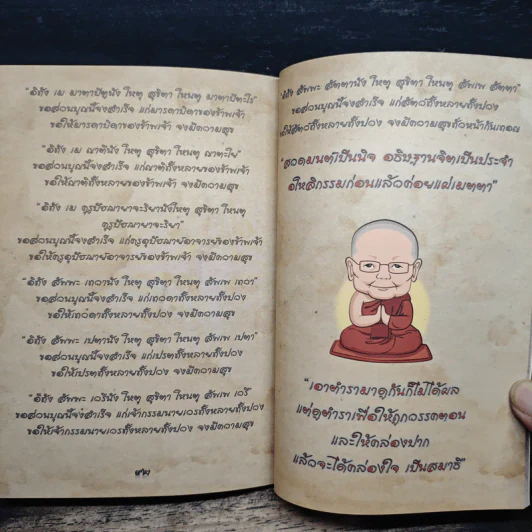 "อิทัง เม มาตาปิตูนัง โหตุ สุขิตา โหนตุ มาตาปิตะโร
ขอส่วนบุญนี้จงสำเร็จ แก่มารดาบิดาของข้าพเจ้า
ขอให้มารดาบิดาของข้าพเจ้า จงมีความสุข
"อิทัง เม ญาตีนัง โหตุ สุขิตา โหนตุ ญาตะโย"
ขอส่วนบุญนี้จงสำเร็จ แก่ญาติทั้งหลายของข้าพเจ้า
ขอให้ญาติทั้งหลายของข้าพเจ้า จงมีความสุข
"อิทัง เม คุรูปัชฌายาจะริยานังโหตุ สุขิตา โหนตุ
คุรูปัชฌายาจะริยา"
ขอส่วนบุญนี้จงสำเร็จ แก่ครูอุปัชฌาย์อาจารย์ของข้าพเจ้า
ขอให้ครูอุปัชฌาย์อาจารย์ของข้าพเจ้า จงมีความสุข
"อิทัง สัพพะ เทวานัง โหตุ สุขิตา โหนตุ สัพเพ เทวา"
ขอส่วนบุญนี้จงสำเร็จ แก่เทวดาทั้งหลายทั้งปวง
ขอให้เทวดาทั้งหลายทั้งปวง จงมีความสุข
"อิทัง สัพพะ เปตานัง โหตุ สุขิตา โหนตุ สัพเพ เปตา"
ขอส่วนบุญนี้จงสำเร็จ แก่เปรตทั้งหลายทั้งปวง
ขอให้เปรตทั้งหลายทั้งปวง จงมีความสุข
"อิทัง สัพพะ เวรีนัง โหตุ สุขิตา โหนตุ สัพเพ เวรี
ขอส่วนบุญนี้จงสำเร็จ แก่เจ้ากรรมนายเวรทั้งหลายทั้งปวง
ขอให้เจ้ากรรมนายเวรทั้งหลายทั้งปวง จงมีความสุข
"อิทัง สัพพะ สัตตานัง โหตุ สุขิตา โหนตุ สัพเพ สัตตา"
ขอส่วนบุญนี้จงสำเร็จ แก่สัตว์ทั้งหลายทั้งปวง
ขอให้สัตว์ทั้งหลายทั้งปวง จงมีความสุขทั่วหน้ากันเทอญ
"สวดมนต์เป็นนิจ อธิษฐานจิตเป็นประจำ
อโหสิกรรมก่อนแล้วค่อยแผ่เมตตา"
"เอาตำรามาดูกันก็ไม่ได้ผล
แต่ดูตำราเพื่อให้ถูกวรรคตอน
และให้คล่องปาก
แล้วจะได้คล่องใจ เป็นสมาธิ"